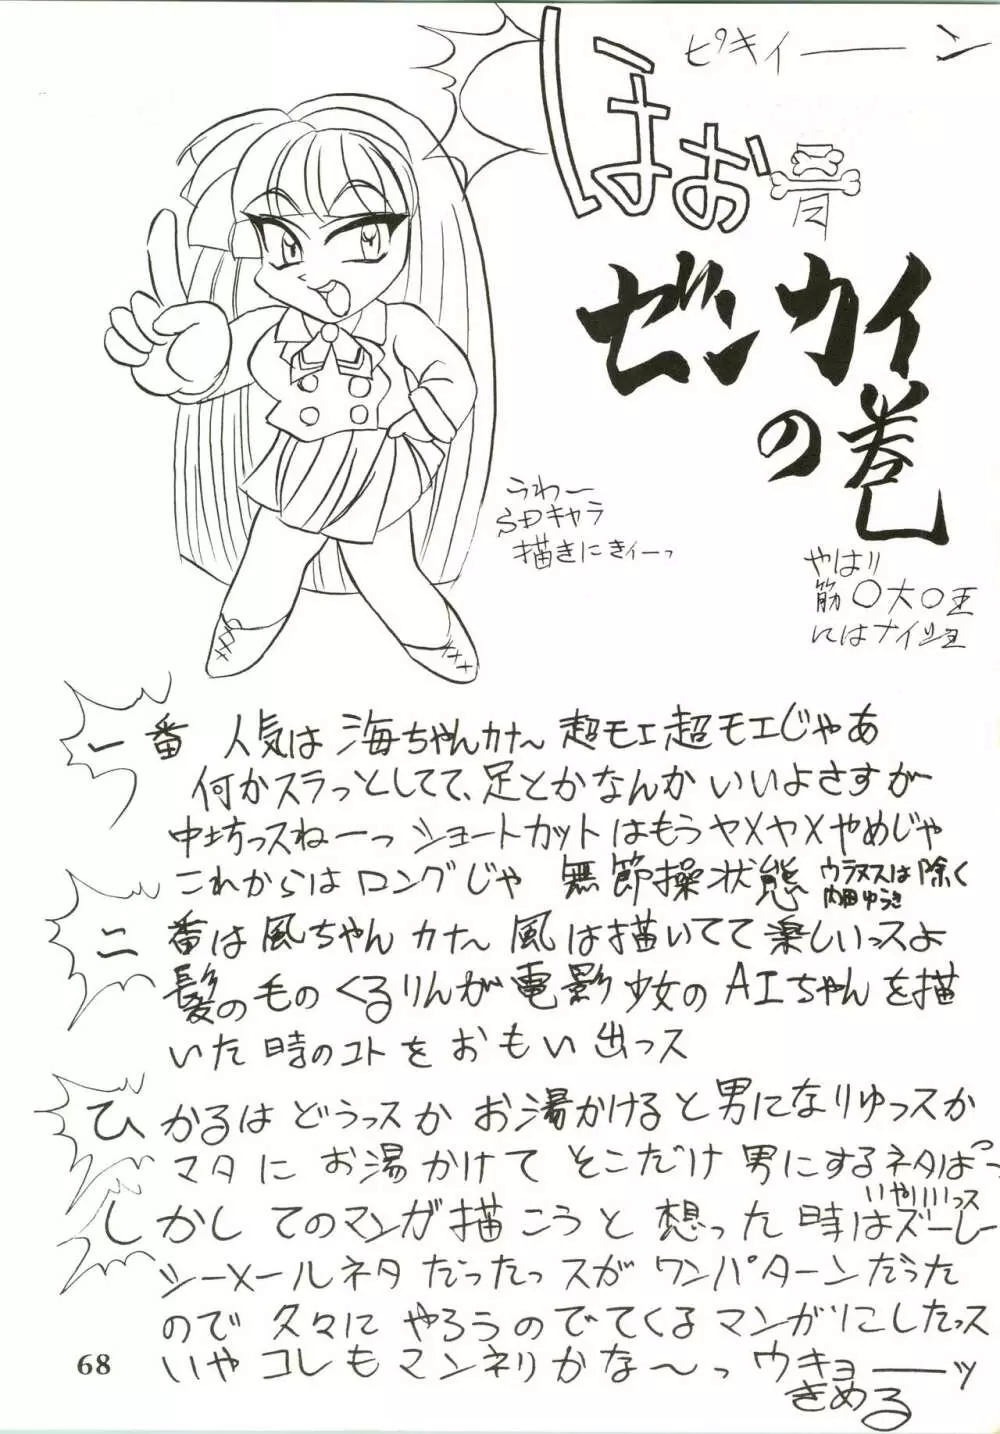 ピキィーーン
ほお骨
ゼンカイ
の巻
うわー
SDキャラ
描きにきぃーっ
やはり
筋〇大〇王
にはナイショ
一番 人気は海ちゃんカナ〜超モエ超モエじゃあ
何かスラっとしてて、足とかなんかいいよさすが
中坊っスねーっ ショートカットはもうヤメヤメやめじゃ
これからはロングじゃ 無節操状態 ウラヌスは除く
内田ゆうき
二番は風ちゃんカナ〜 風は描いてて楽しいっスよ
髪の毛のくるりんが電影少女のAIちゃんを描
いた時のコトをおもい出っス
ひかるはどうっスか お湯かけると男になりゆっスか
マタにお湯かけてそこだけ男にするネタはっ
いやパパパっス
しかしてのマンガ描こうと想った時はズーレー
シーメールネタだったっスがワンパターンだった
ので久々にやろうのでてくるマンガにしたっス
いやコレもマンネリかな〜っウキョーーッ
きめる
68